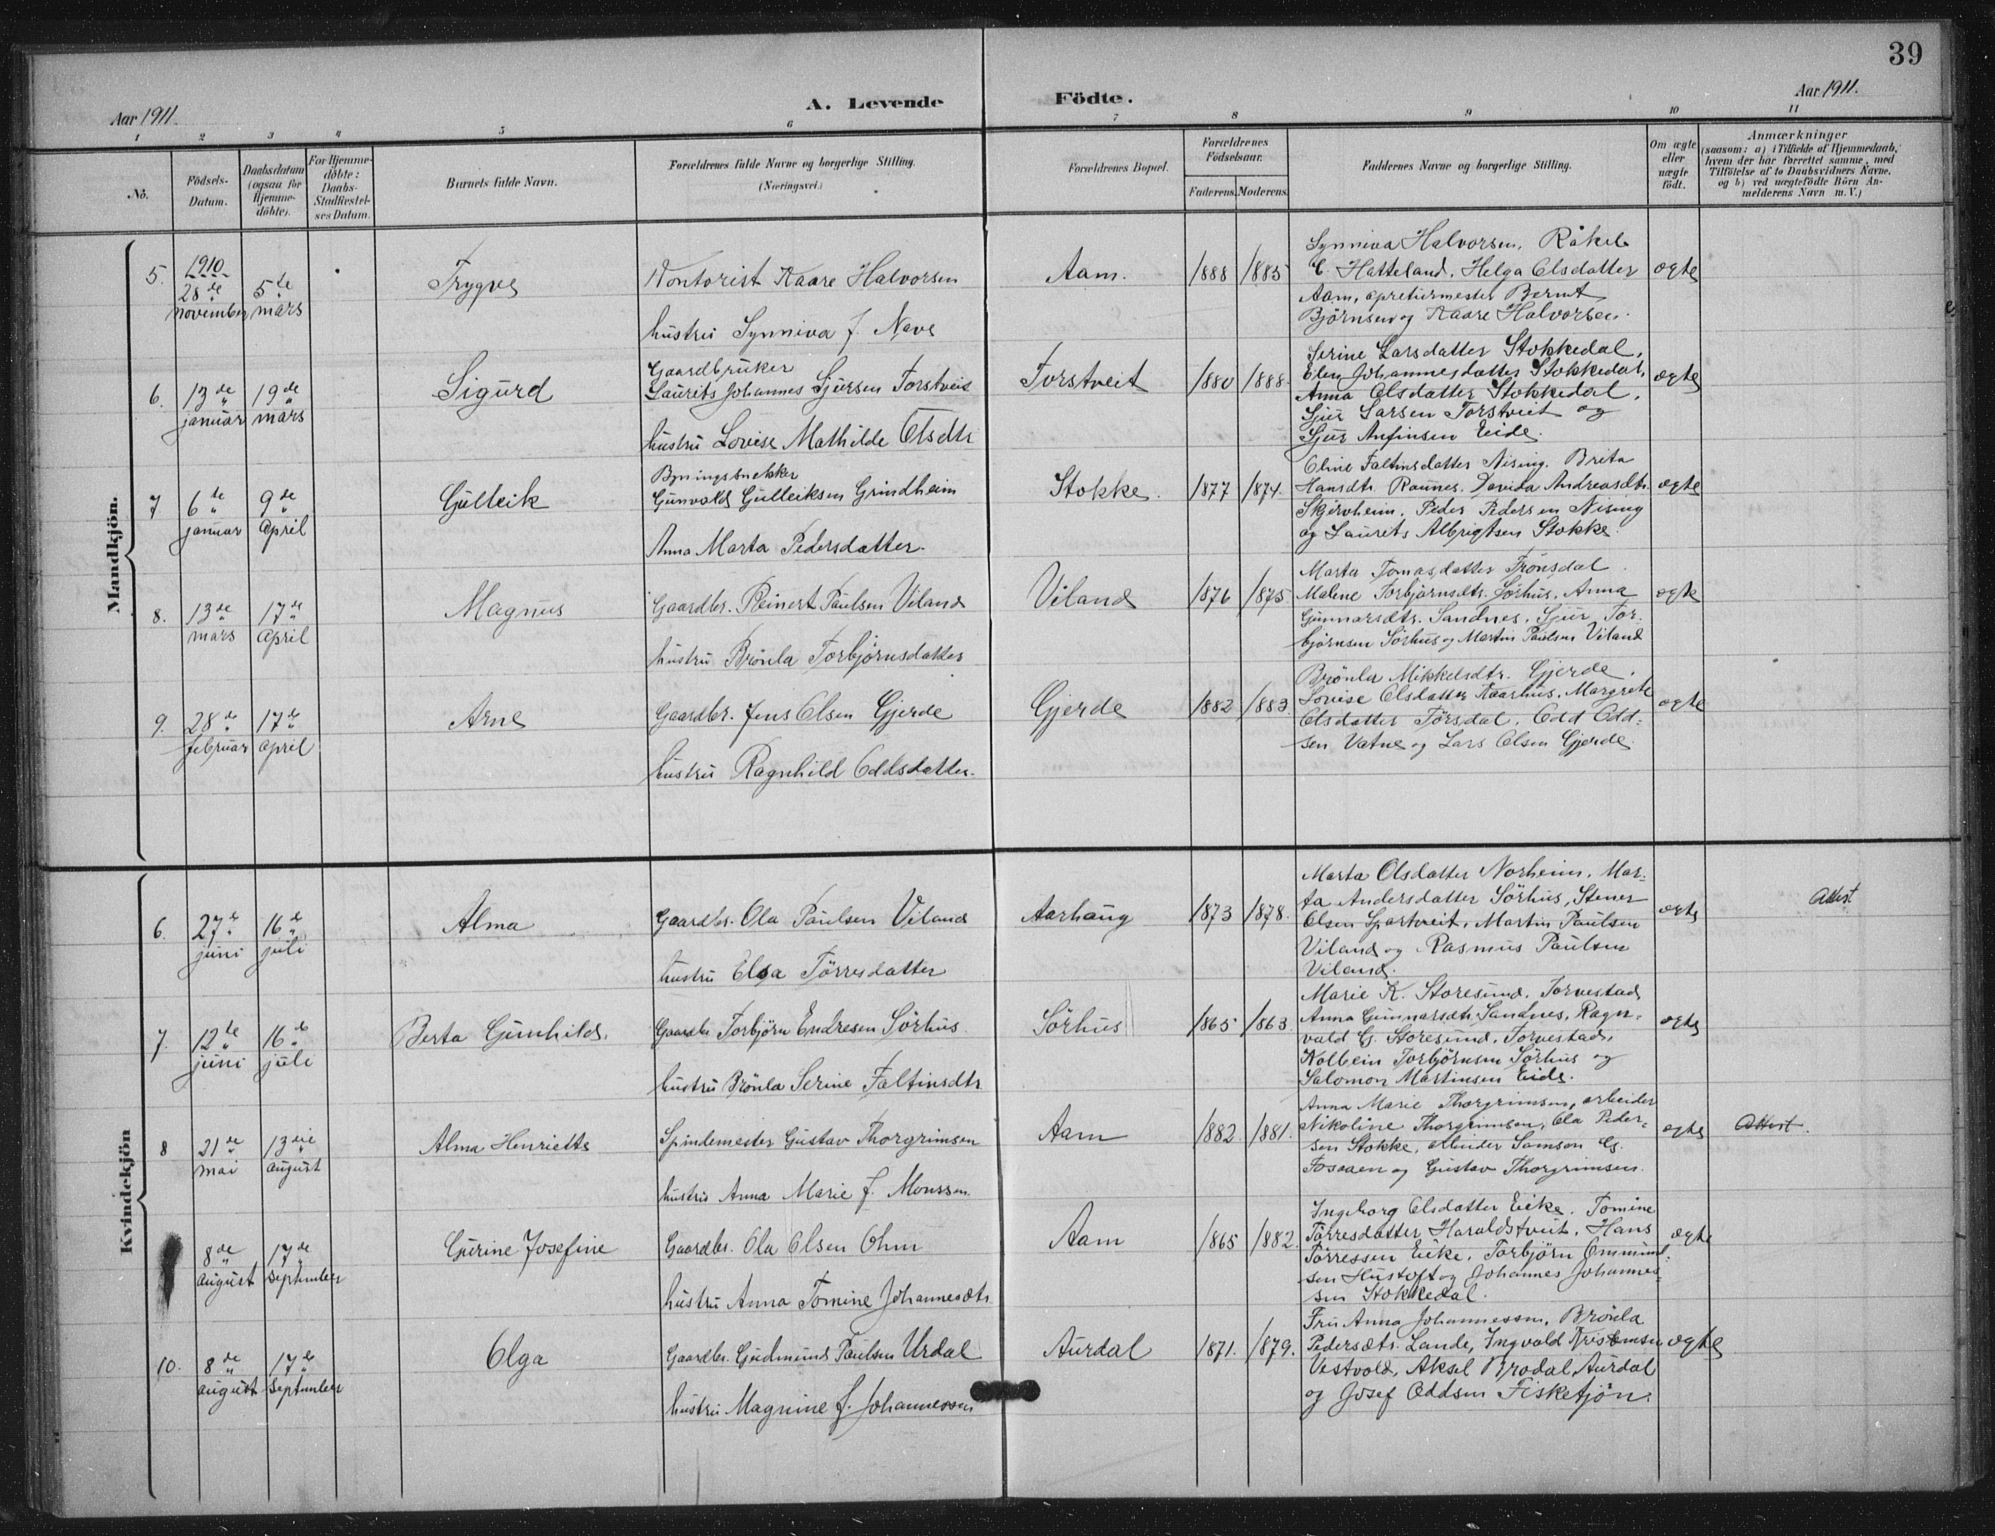 39
Aar 1911.
A. Levende Födte.
Aar 1911.
1 2 3 4 5 6 7 8 9 10 11
No.
Födsels-Datum.
Daabsdatum (ogsaa for Hjemmedöbte).
For Hjemmedöbte: Daabs-Stadfestelses Datum.
Barnets fulde Navn.
Forældrenes fulde Navne og borgerlige Stilling. (Næringsvei.)
Forældrenes Bopæl.
Forældrenes Födselsaar.
Faderens. Moderens.
Faddernes Navne og borgerlige Stilling.
Om ægte eller uægte födt.
Anmærkninger
(saasom: a) i Tilfælde af Hjemmedaab, hvem der har forrettet samme, med Tilföielse af to Daabsvidners Navne, og b) ved uægtefödte Börn Anmelderens Navn m. V.)
Mandkjön.
5. 1910 28de november
5te mars
Trygve
Kontorist Kaare Halvorsen
hustru Synniva f. Nave
Aam.
1888 1885
Synniva Halvorsen, Rakel
C. Hatteland, Helga Olsdatter
Aam, apreturmester Bernt
Björnsen og Kaare Halvorsen.
ægte
6. 13de januar
19de mars
Sigurd
Gaardbruker
Laurits Johannes Sjursen Forstveit
hustru Lovise Mathilde Olsdtr
Forstveit
1880 1888.
Serine Larsdatter Stokkedal,
Elen Johannesdatter Stokkedal,
Anna Olsdatter Stokkedal,
Sjur Larsen Forstveit og
Sjur Anfinsen Eide.
ægte
7 6te januar
9de april
Gulleik
Bygningssnekker
Gunvald Gulleiksen Grindheim
Anna Marta Pedersdatter.
Stokke.
1877 1874.
Oline Faltinsdatter Nising, Brita
Hansdtr. Raunes, Davida Andreasdtr.
Skjervheim, Peder Pedersen Nising
og Laurits Albrigtsen Stokke.
ægte
8. 13de mars
17de april
Magnus
Gaardbr. Reinert Paulsen Viland
hustru Brönla Torbjörnsdatter
Viland
1876 1875
Marta Tomasdatter Trönsdal
Malene Torbjörnsdtr. Sörhus, Anna
Gunnarsdtr. Sandnes, Sjur Tor-
björnsen Sörhus og Martin Paulsen Viland
ægte
9. 28de februar
17de april
Arne
Gaardbr. Jens Olsen Gjerde
hustru Ragnhild Oddsdatter.
Gjerde
1882 1883
Brönla Mikkelsdtr. Gjerde,
Lovise Olsdatter Kaarhus, Margrete
Olsdatter Törsdal, Odd Odd-
sen Vatne og Lars Olsen Gjerde.
ægte
Kvindekjön
6. 27de juni
16de juli
Alma
Gaardbr. Ola Paulsen Viland
hustru Elsa Törresdatter
Aarhaug
1873 1878.
Marta Olsdatter Norheim, Mar-
ta Andersdatter Sörhus, Stener
Olsen Spartveit, Martin Paulsen
Viland og Rasmus Paulsen
Viland.
ægte
Attest
7. 12te juni
16de juli
Berta Gunhild.
Gaardbr Torbjörn Endresen Sörhus
hustru Brönla Serine Faltinsdtr
Sörhus
1865 1863
Marie K. Storesund, Torvestad
Anna Gunnarsdtr Sandnes, Ragn-
vald G. Storesund, Torvestad,
Kolbein Torbjörnsen Sörhus og
Salomon Martinsen Eide.
ægte
8 21de mai
13die august
Alma Henriette
Spindemester Gustav Thorgrimsen
hustru Anna Marie f. Monssen.
Aam
1882. 1881.
Anna Marie Thorgrimsen, arbeider
Nikoline Thorgrimsen, Ola Peder-
sen Stokke, Minder Samson G.
Fosaaen og Gustav Thorgrimsen.
ægte
Attest.
8de august
17de september
Gurine Josefine
Gaardbr. Ola Olsen Ohm
hustru Anna Tomine Johannesdtr.
Aam
1865 1882.
Ingeborg Olsdatter Eike, Tomine
Törresdatter Haraldstveit, Hans
Törressen Eike, Torbjörn Ommund-
sen Hustoft og Johannes Johannes-
sen Stokkedal.
ægte
10. 8de august
17de september
Olga
Gaardbr. Gudmund Paulsen Urdal
hustru Magnine f. Johannessen
Aurdal
1871. 1879.
Fru Anna Johannessen, Brönla
Pedersdtr. Lande, Ingvald Kristensen
Vestvold, Aksel Brodal, Aurdal
og Josef Oddsen Fisketjön.
ægte